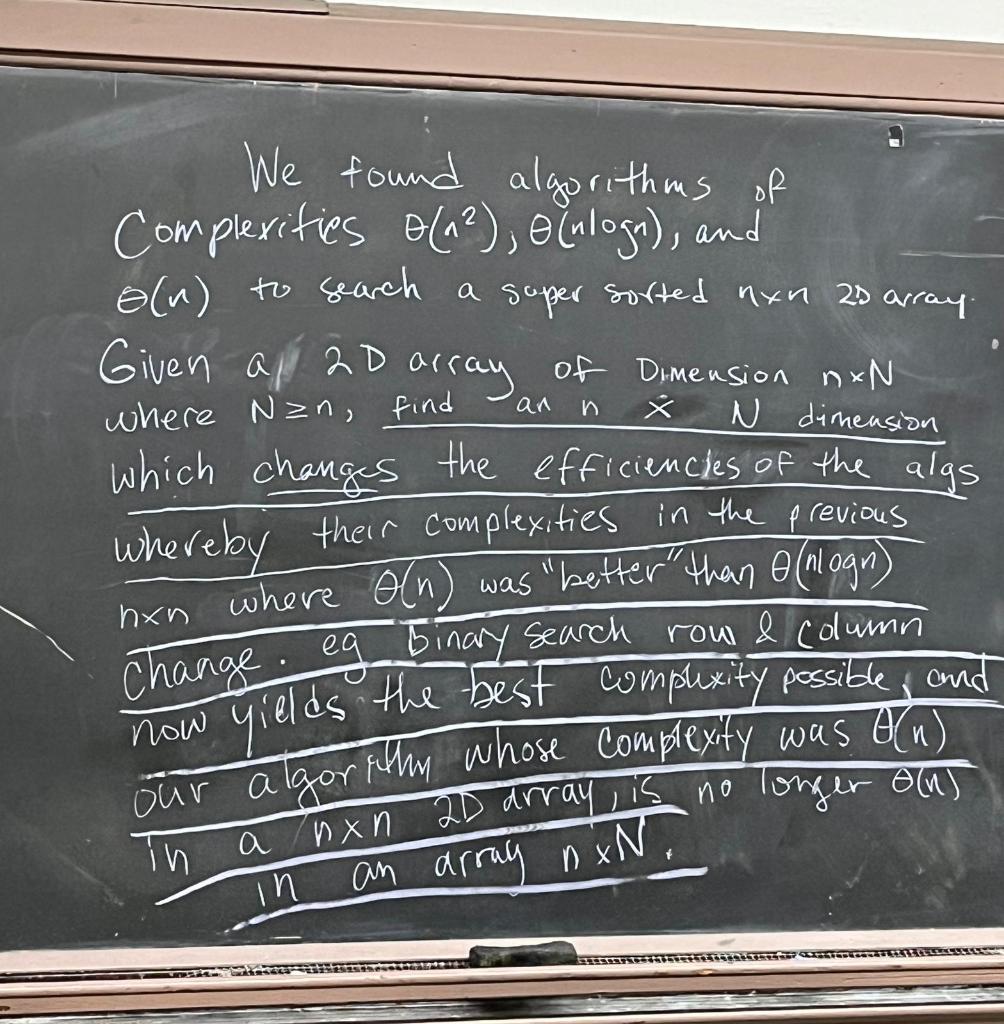 We found algorithms of
Complexities θ(n²), θ(nlogn), and
θ(n) to search a super sorted nxn 2D array.
Given a 2D array of Dimension nxN
where N≥n, find an n x N dimension
which changes the efficiencies of the algs
whereby their complexities in the previous
nxn where θ(n) was "better" than θ(nlogn)
change. eg binary search row & column
now yields the best complexity possible, and
our algorithm whose complexity was θ(n)
in a nxn 2D array, is no longer θ(n)
in an array nxN.